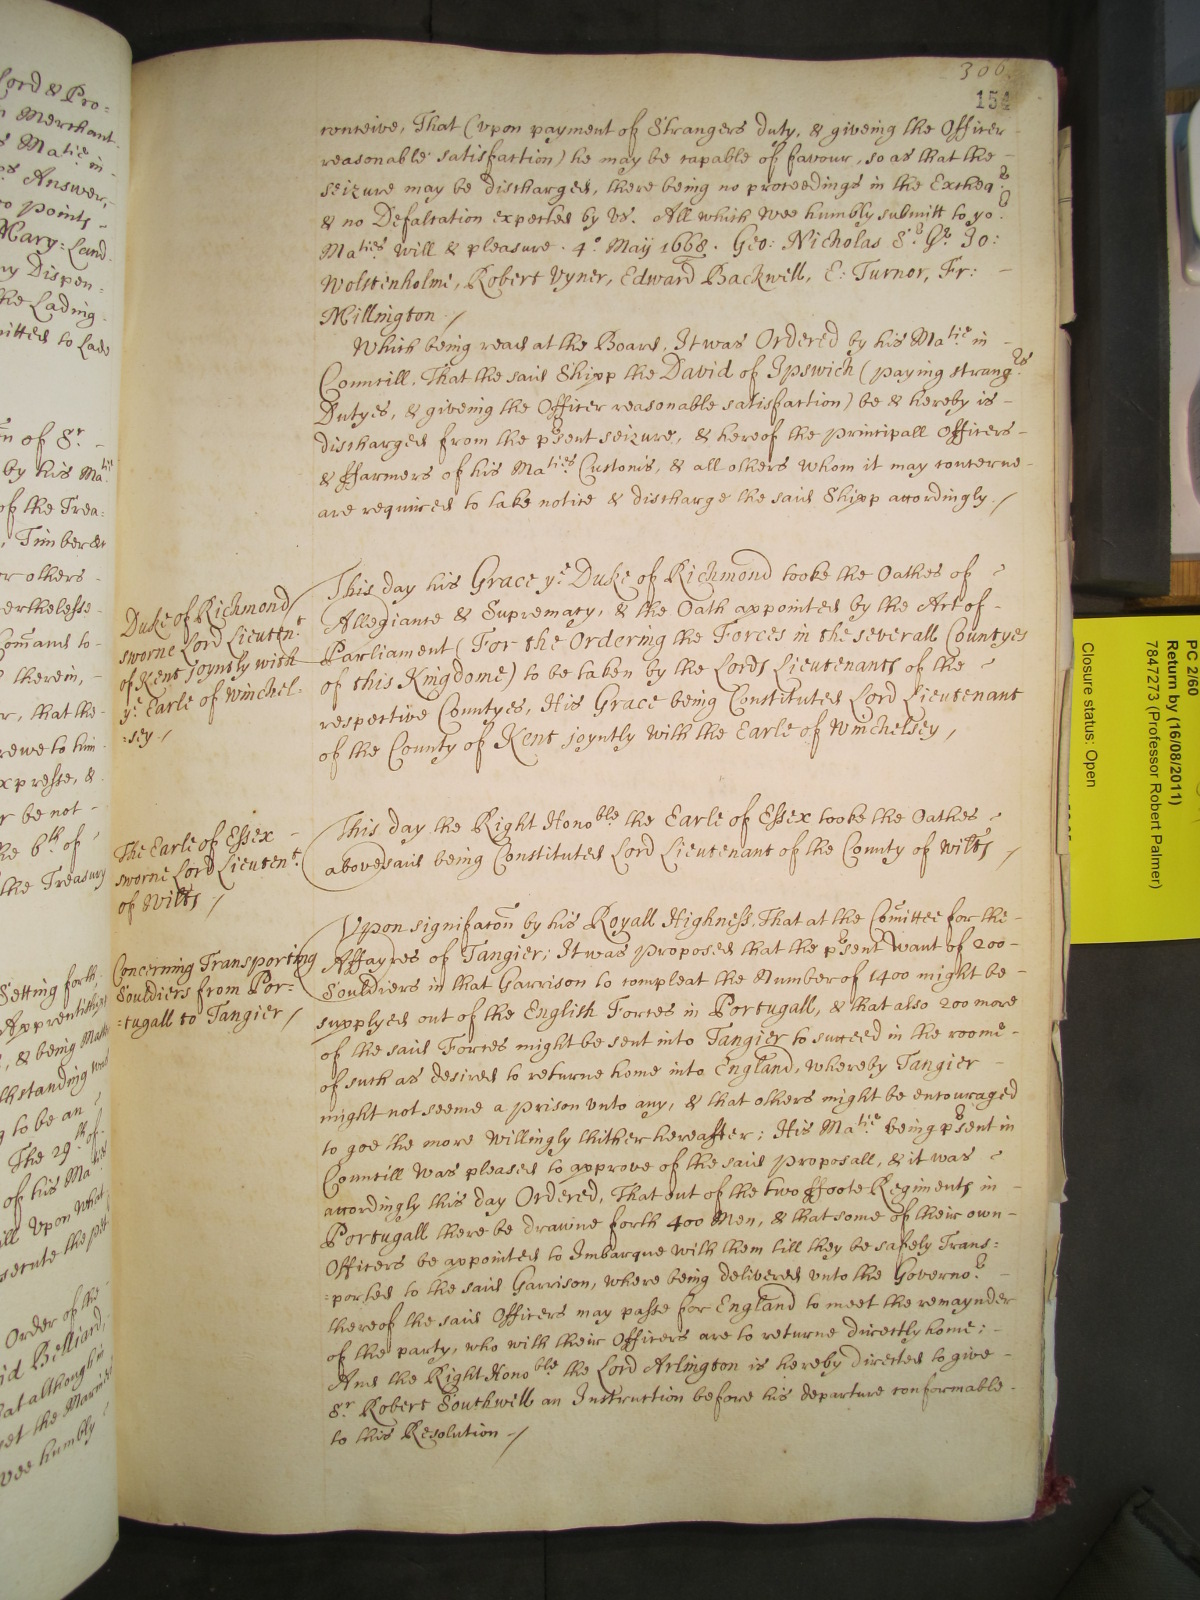 Lord & Pro=
Merchant
Ma:tie in
Answer,
points
Mary=Land
Dispen=
the Lading
to Lade
of Sr
by his Ma:tie
of the Trea=
, Timber &c
or others
Comand to
therein, -
that the
be not
the 6th of
the Treasury
Setting forth
& being
to be an
The 29th of
of his Ma:ties
upon what
Order of the
although
humbly
300.
154
conceive, That (upon payment of Strangers duty, & giveing the Officer
reasonable satisfaction) he may be capable of favour, so as that the -
seizure may be discharged, there being no proceedings in the Excheqr
& no Defalcation expected by us. All which wee humbly submitt to yor
Ma:ties will & pleasure. 4o May 1668. Geo: Nicholas Jo:
Wolstenholme, Robert Vyner, Edward Backwell, E: Turnor, Fr: -
Millington /
Which being read at the Board, It was Ordered by his Ma:tie in -
Councill, That the said Shipp the David of Ipswich (paying strangrs
Dutyes, & giveing the Officer reasonable satisfaction) be & hereby is -
discharged from the psent seizure, & hereof the Principall Officers -
& ffarmers of his Ma:ties Customs, & all others whom it may concerne -
are required to take notice & discharge the said Shipp accordingly. /
Duke of Richmond
sworne Lord Lieuten:t
of Kent joyntly with
ye Earle of Winchel=
=sey. /
This day his Grace ye Duke of Richmond tooke the Oathes of
Allegiance & Supremacy, & the Oath appointed by the Act of -
Parliament (For the Ordering the Forces in the severall Countyes
of this Kingdome) to be taken by the Lords Lieutenants of the
respective Countyes, His Grace being Constituted Lord Lieutenant
of the County of Kent joyntly with the Earle of Winchelsey /
The Earle of Essex -
sworne Lord Lieuten:t
of Wilts /
This day the Right Hono:ble the Earle of Essex tooke the Oathes
abovesaid being Constituted Lord Lieutenant of the County of Wilts /
Concerning Transporting
Souldiers from Por=
=tugall to Tangier /
Vpon signifacon by his Royall Highness, That at the Comittee for the -
Affayres of Tangier; It was proposed that the psent Want of 200 -
Souldiers in that Garrison to compleat the Number of 1400 might be -
supplyed out of the English Forces in Portugall, & that also 200 more
of the said Forces might be sent into Tangier to succeed in the roome -
of such as desired to returne home into England, whereby Tangier -
might not seeme a prison vnto any, & that others might be encouraged
to goe the more willingly thither hereafter; His Ma:tie being psent in
Councill was pleased to approve of the said proposall, & it was
accordingly this day Ordered, That out of the two ffoote Regiments in -
Portugall there be drawne forth 400 Men, & that some of their own -
Officers be appointed to Imbarque with them till they be safely Trans=
=ported to the said Garrison, where being delivered vnto the Governor -
thereof the said Officers may passe for England to meet the remaynder
of the party, who with their Officers are to returne directly home; -
And the Right Hono:ble the Lord Arlington is hereby directed to give -
Sr Robert Southwell an Instruction before his departure conformable -
to this Resolution - /
PC 2/60
Return by (16/08/2011)
7847273 (Professor Robert Palmer)
Closure status: Open